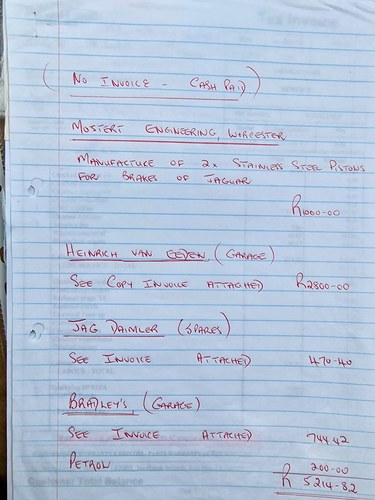 (NO INVOICE - CASH PAID)
MOSTERT ENGINEERING, WORCESTER
MANUFACTURE OF 2x STAINLESS STEEL PISTONS
FOR BRAKES OF JAGUAR
R1000-00
HEINRICH VAN EEDEN (GARAGE)
SEE COPY INVOICE ATTACHED R2800-00
JAG DAIMLER (SPARES)
SEE INVOICE ATTACHED 470-40
BRADLEY'S (GARAGE)
SEE INVOICE ATTACHED 744,42
PETROL 200-00
R 5214-82